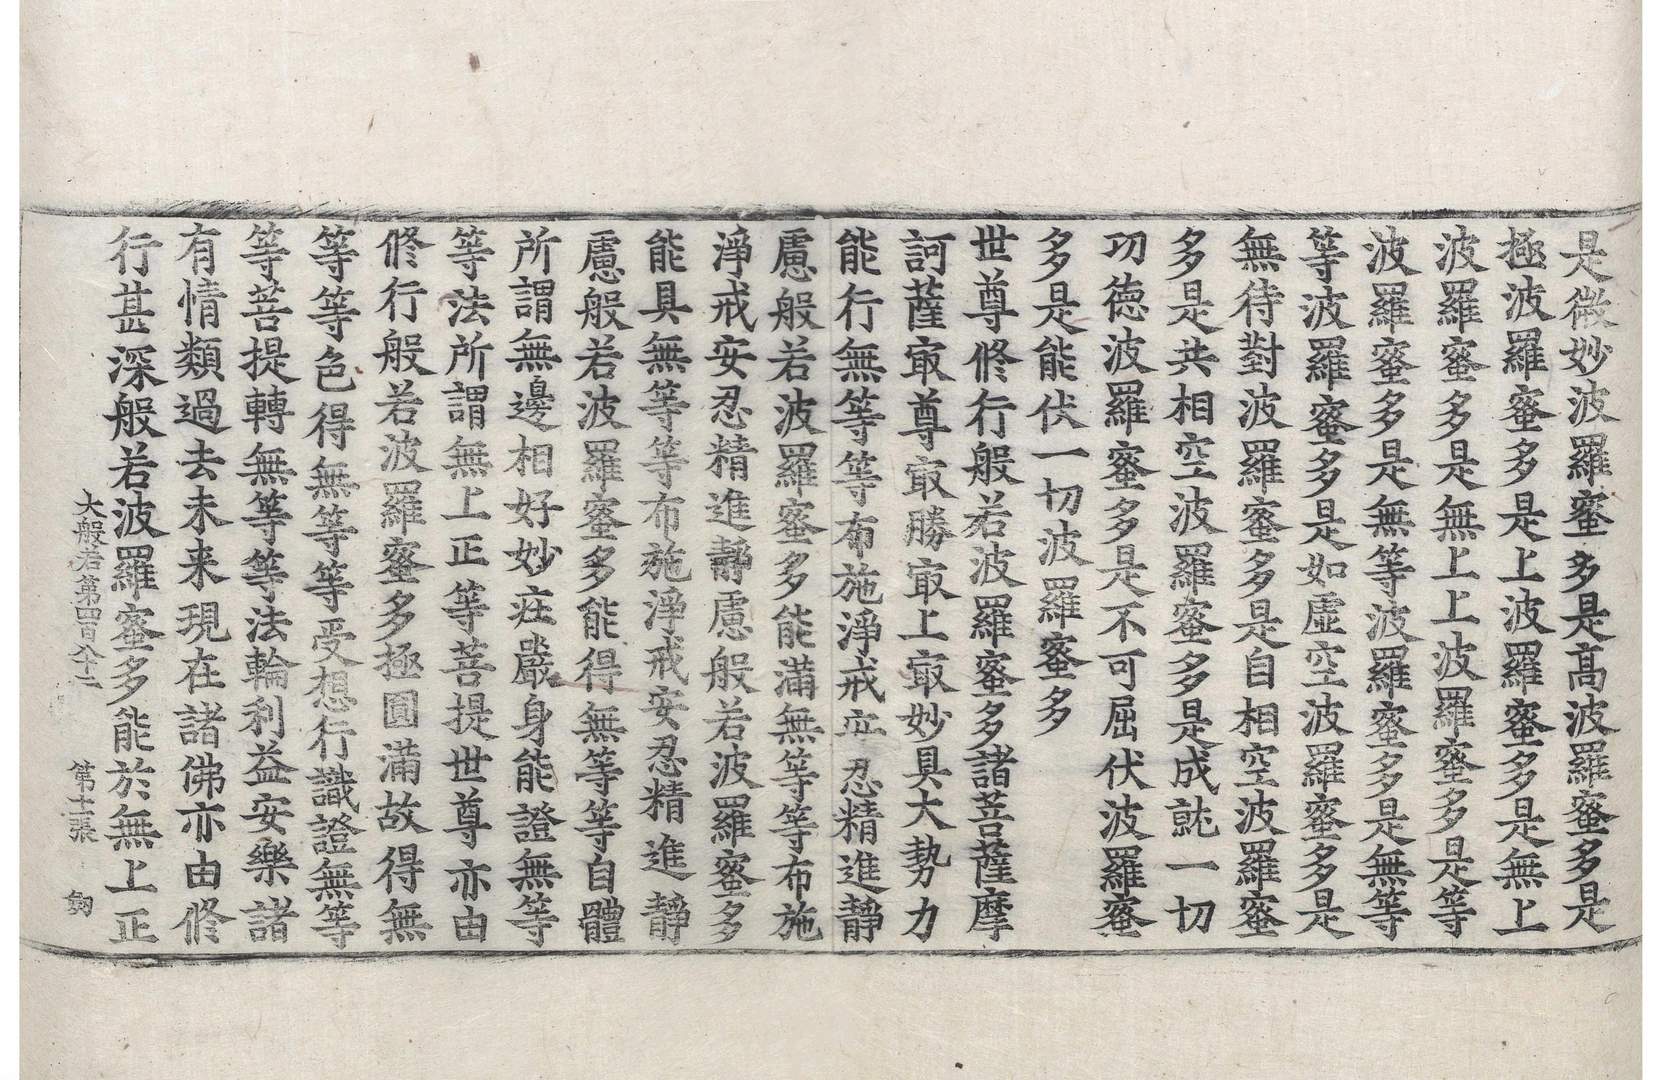 是微妙波羅蜜多是高波羅蜜多是
極波羅蜜多是上波羅蜜多是無上
波羅蜜多是無上上波羅蜜多是等
波羅蜜多是無等波羅蜜多是無等
等波羅蜜多是如虛空波羅蜜多是
無待對波羅蜜多是自相空波羅蜜
多是共相空波羅蜜多是成就一切
功德波羅蜜多是不可屈伏波羅蜜
多是能伏一切波羅蜜多
世尊修行般若波羅蜜多諸菩薩摩
訶薩㝡尊㝡勝㝡上㝡妙具大勢力
能行無等等布施淨戒安忍精進靜
慮般若波羅蜜多能滿無等等布施
淨戒安忍精進靜慮般若波羅蜜多
能具無等等布施淨戒安忍精進靜
慮般若波羅蜜多能得無等等自體
所謂無邊相好妙疘嚴身能證無等
等法所謂無上正等菩提世尊亦由
修行般若波羅蜜多極圓滿故得無
等等色得無等等受想行識證無等
等菩提轉無等等法輪利益安樂諸
有情類過去未来現在諸佛亦由修
行甚深般若波羅蜜多能於無上正
大般若第四百八十二 第十二張